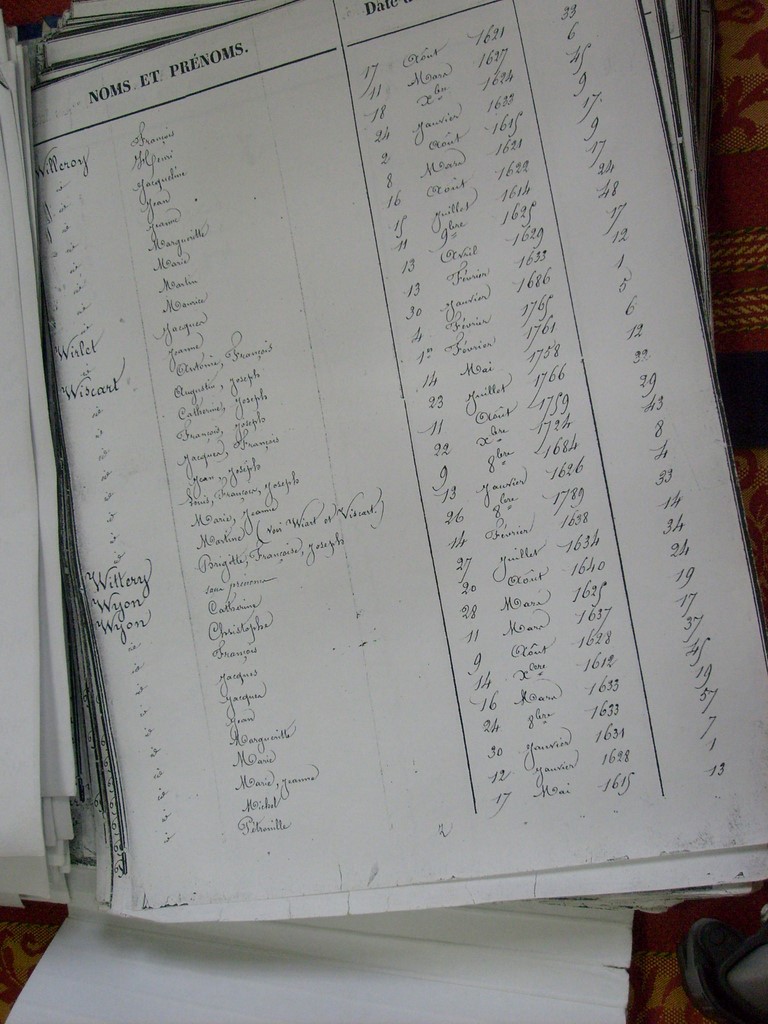 NOMS ET PRÉNOMS. Date
Willeroy François 17 Août 1621 33
id Henri 11 Mars 1627 6
id Jacqueline 18 Xbre 1624 45
id Jean 24 Janvier 1633 9
id Jeanne 2 Août 1615 17
id Marguerite 8 Mars 1621 9
id Marie 16 Août 1622 17
id Martin 15 Juillet 1614 24
id Maurice 11 9bre 1625 48
id Jacques 13 Avril 1629 17
id Jeanne 13 Février 1633 12
Wirlet Antoine, François 30 Janvier 1686 1
Wiscart Augustin, Joseph 4 Février 1765 5
id Catherine, Joseph 1er Février 1761 6
id François, Joseph 14 Mai 1758 12
id Jacques, François 23 Juillet 1766 32
id Jean, Joseph 11 Août 1759 29
id Louis, François, Joseph 22 Xbre 1724 43
id Marie, Jeanne 9 8bre 1684 8
id Martine (voir Wiart et Viscart) 13 Janvier 1626 4
Wittery Brigitte, Françoise, Joseph 26 8bre 1789 33
Wyon sans prénoms 14 Février 1638 14
Wyon Catherine 27 Juillet 1634 34
id Christophe 20 Août 1640 24
id François 28 Mars 1625 19
id Jacques 11 Mars 1637 17
id Jacques 9 Août 1628 37
id Jean 14 Xbre 1612 45
id Marguerite 16 Mars 1633 19
id Marie 24 8bre 1633 57
id Marie, Jeanne 30 Janvier 1631 7
id Michel 12 Janvier 1628 1
id Pétronille 17 Mai 1615 13